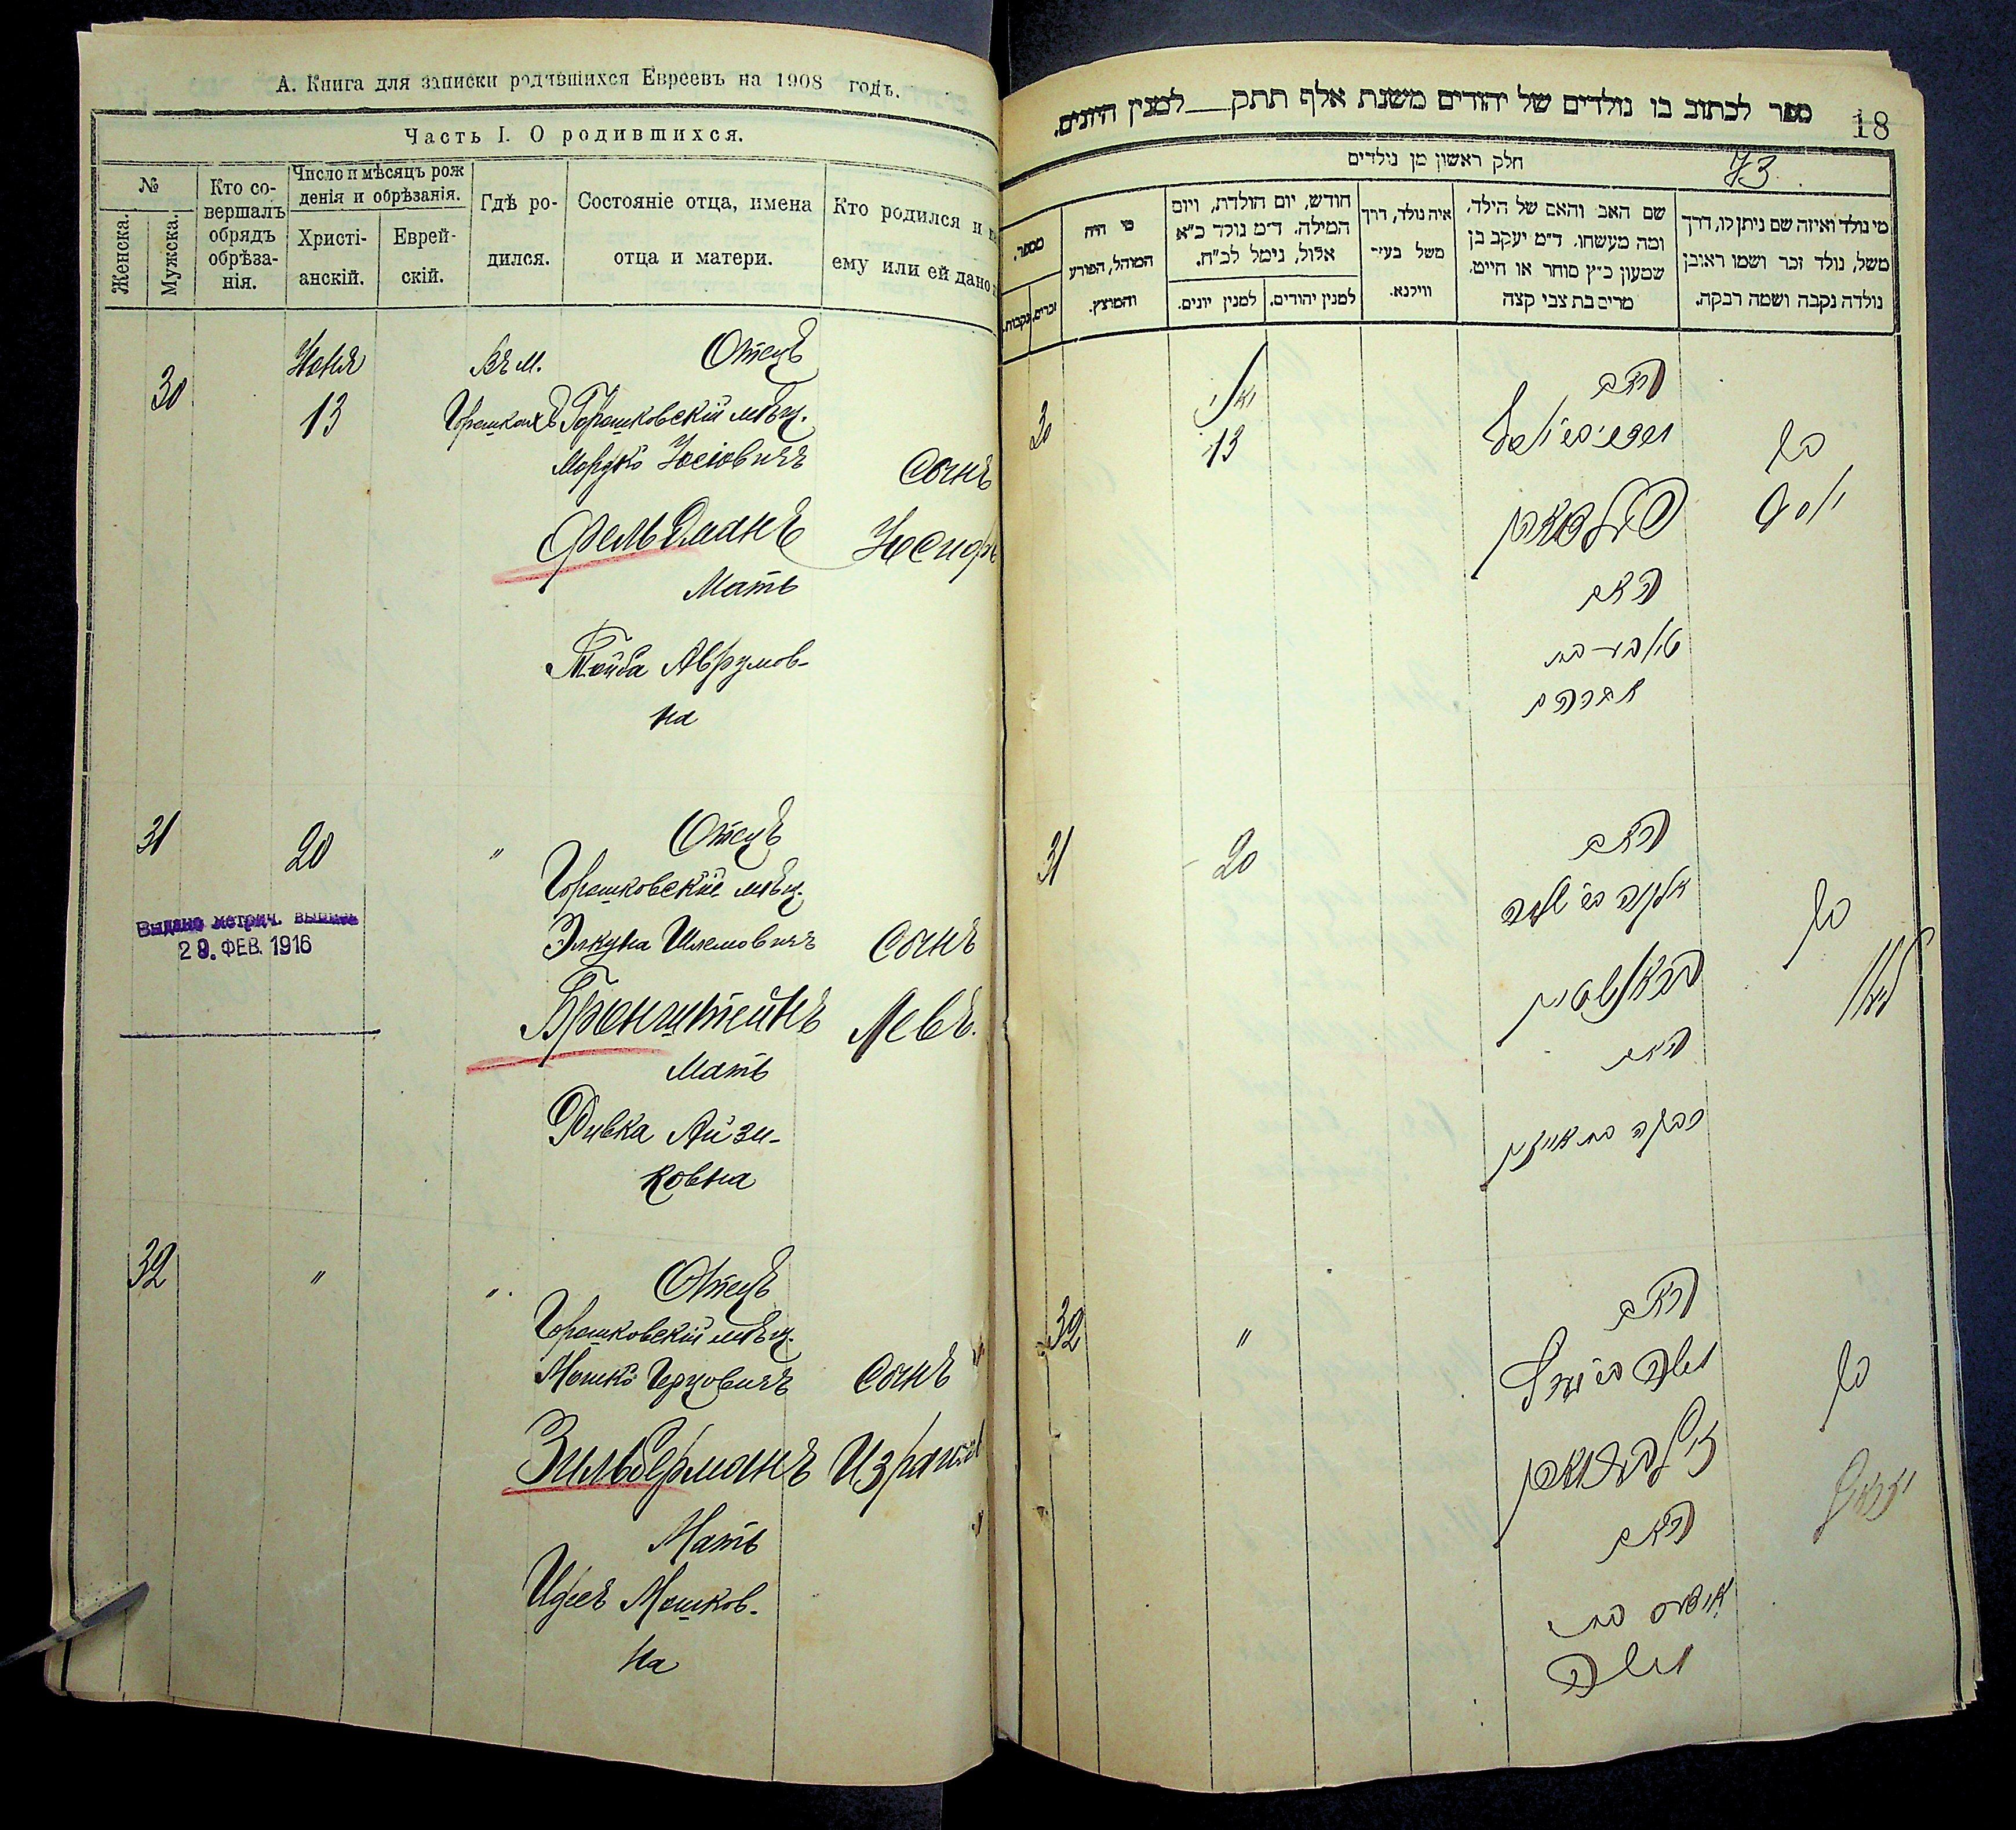 А. Книга для записки родившихся Евреевъ на 1908 годъ.
Часть I. О родившихся.
№
Женска.
Мужска.
Кто со-
вершалъ
обрядъ
обрѣза-
нія.
Число и мѣсяцъ рож
денія и обрѣзанія.
Христі-
анскій.
Еврей-
скій.
Гдѣ ро-
дился.
Состояніе отца, имена
отца и матери.
Кто родился и
ему или ей дано
30
Іюня
13
Въ м.
Горошкахъ
Отецъ
Горошковскій мѣщ.
Мордко Іосіовичъ
Фельдманъ
Мать
Тойба Аврумов-
на
Сынъ
Іосифъ
31
20
"
Отецъ
Горошковскій мѣщ.
Элкуна Шлемовичъ
Бронштейнъ
Мать
Ривка Айзи-
ковна
Сынъ
Левъ.
Выдано метрич. выпись
29. ФЕВ. 1916
32
"
"
Отецъ
Горошковскій мѣщ.
Мошко Герцовичъ
Зильберманъ
Мать
Мошков-
на
Сынъ
Израиль
ספר לכתוב בו נולדים של יהודים משנת אלף תתק___למנין היונים.
18
חלק ראשון מן נולדים
73
מי נולד ואיזה שם ניתן לו, דרך
משל, נולד זכר ושמו ראובן
נולדה נקבה ושמה רבקה.
שם האב והאם של הילד,
ומה מעשהו. ד״מ יעקב בן
שמעון כ״ץ סוחר או חייט.
מרים בת צבי קצה
איה נולד, דרך
משל בעיר
ווילנא.
חודש, יום הולדת, ויום
המילה. ד״מ נולד כ״א
אלול, נימל לכ״ח.
למנין יהודים.
למנין יונים.
מי היה
המוהל, הפורע
והמוצץ.
מספר.
זכרים.
נקבות.
30
יוני
13
האב
פעלדמאן
האם
טויבע בת
אברהם
בן
יוסף
31
20
האב
אלקנה בן שלמה
בראנשטיין
האם
רבקה בת אייזיק
בן
ליב
32
"
האב
משה בן הערץ
זילבערמאן
האם
בת
משה
בן
ישראל